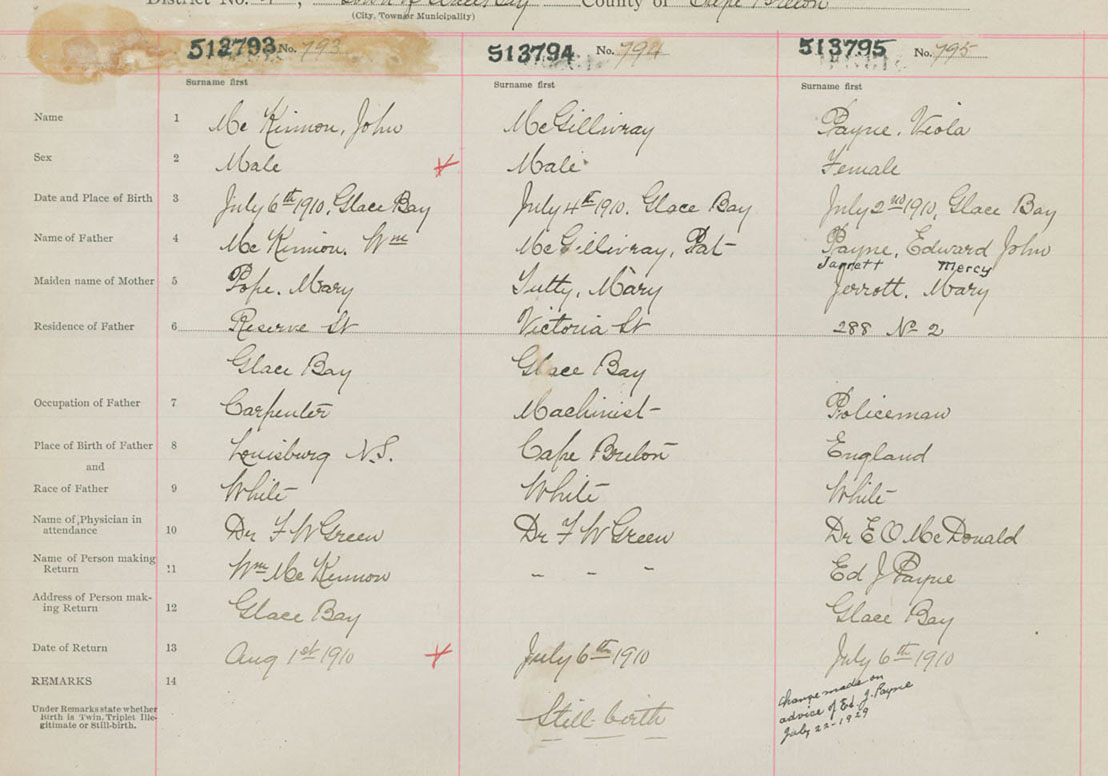 District No. 4, Town of Glace Bay County of Cape Breton
(City, Town or Municipality)
513793 No. 793 513794 No. 794 513795 No. 795
Surname first Surname first Surname first
Name 1 Mc Kinnon, John McGillivray Payne, Viola
Sex 2 Male Male Female
Date and Place of Birth 3 July 6th 1910, Glace Bay July 4th 1910. Glace Bay July 2nd 1910, Glace Bay
Name of Father 4 Mc Kinnon, Wm McGillivray, Pat Payne, Edward John
Jarrett Mercy
Maiden name of Mother 5 Pope, Mary Tutty, Mary Jerrott, Mary
Residence of Father 6 Reserve St Victoria St 288 No 2
Glace Bay Glace Bay
Occupation of Father 7 Carpenter Machinist Policeman
Place of Birth of Father 8 Louisburg N.S. Cape Breton England
and
Race of Father 9 White White White
Name of Physician in
attendance 10 Dr F W Green Dr F W Green Dr E O McDonald
Name of Person making
Return 11 Wm Mc Kinnon - - - Ed J Payne
Address of Person mak-
ing Return 12 Glace Bay Glace Bay
Date of Return 13 Aug 1st 1910 July 6th 1910 July 6th 1910
REMARKS 14
Under Remarks state whether
Birth is Twin, Triplet Ille-
gitimate or Still-birth.
Still-birth
Change made on
advice of Ed. J. Payne
July 22-1929